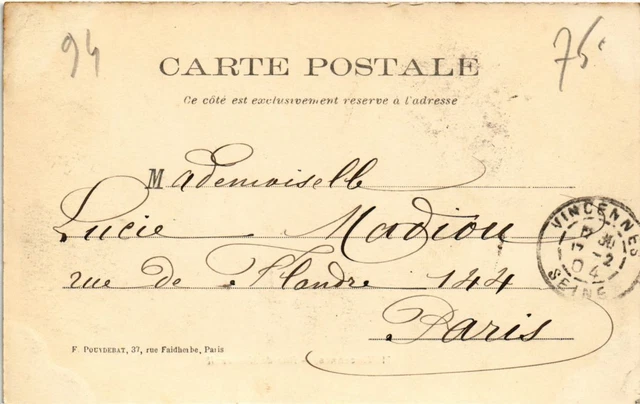 94
75
CARTE POSTALE
Ce côté est exclusivement reservé à l'adresse
Mademoiselle
Lucie Madiou
rue de Flandre 144
Paris
VINCENNES
30
17 -2
04
SEINE
F. POUYDEBAT, 37, rue Faidherbe, Paris